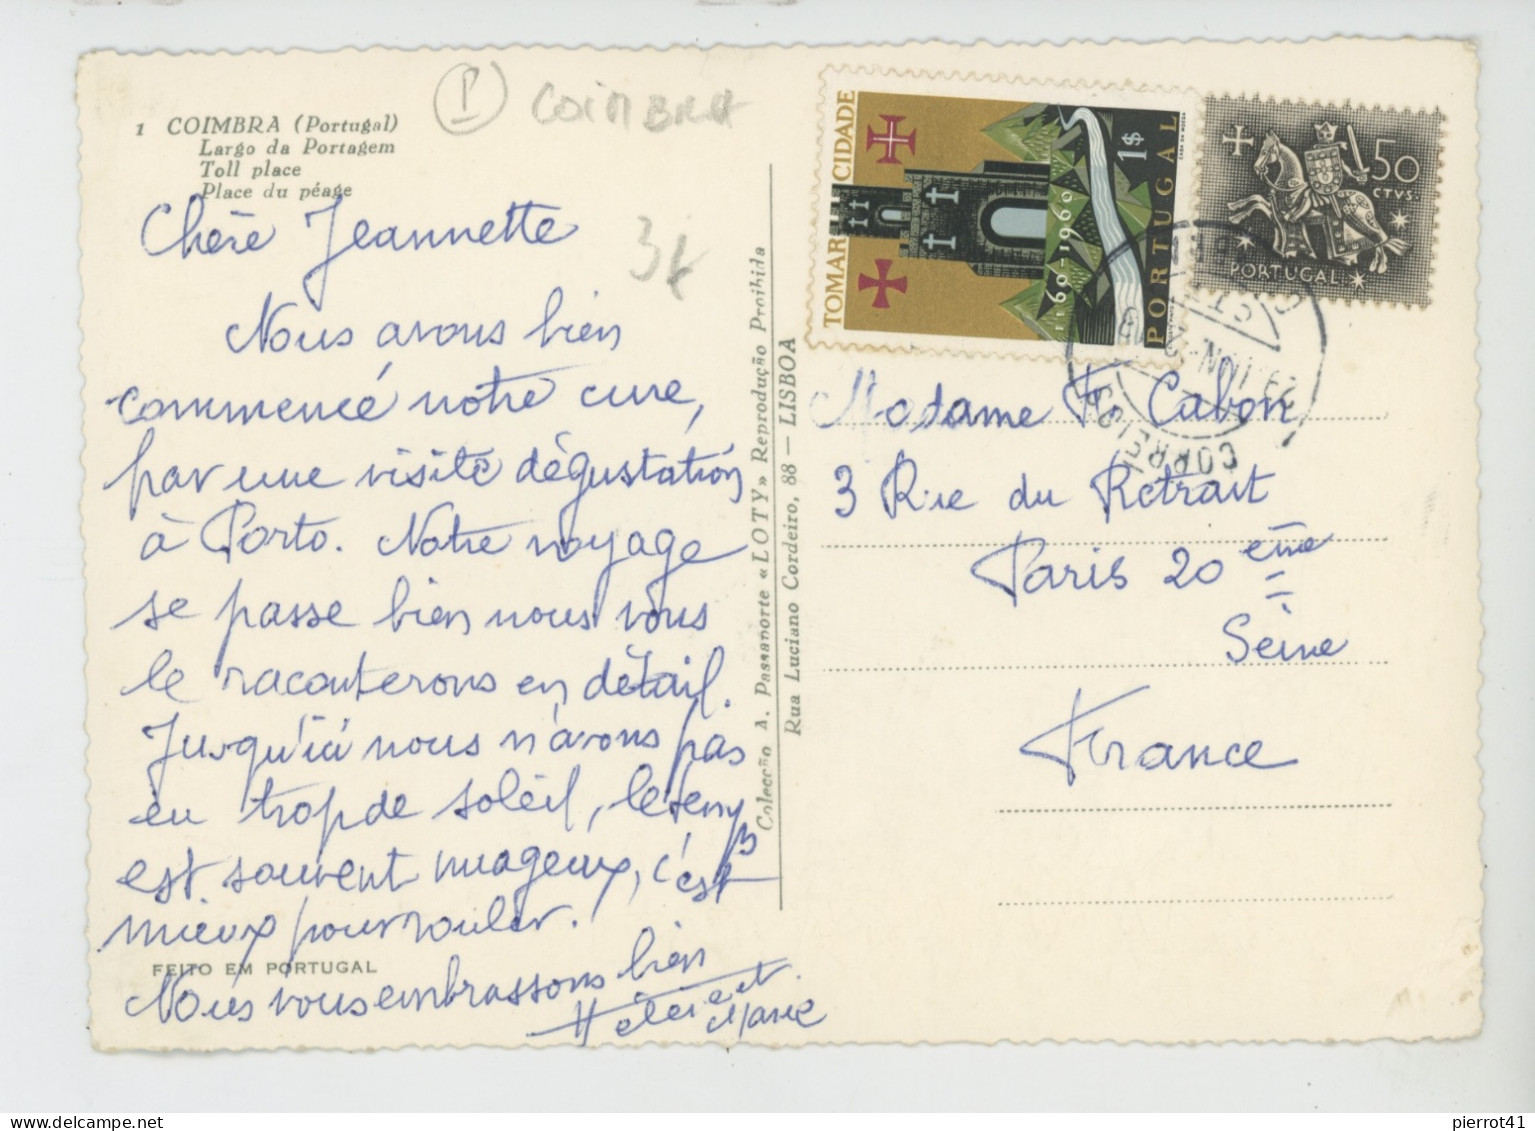 1 COIMBRA (Portugal)
Largo da Portagem
Toll place
Place du péage
P COIMBRA
3€
Chère Jeannette
Nous avons bien
commencé notre cure,
par une visite dégustation
à Porto. Notre voyage
se passe bien nous vous
le raconterons en détail.
Jusqu'ici nous n'avons pas
eu trop de soleil, le temps
est souvent nuageux, c'est
mieux pour rouler.
Nous vous embrassons bien
Hélène et
Marie
FEITO EM PORTUGAL
Colecção A. Passaporte «LOTY» Reprodução Proibida
Rua Luciano Cordeiro, 88 — LISBOA
TOMAR CIDADE
1160-1960
1$
PORTUGAL
CASA DA MOEDA
50
CTVS.
PORTUGAL
CORREIOS
Madame F. Cabon
3 Rue du Retrait
Paris 20 eme
Seine
France
pierrot41